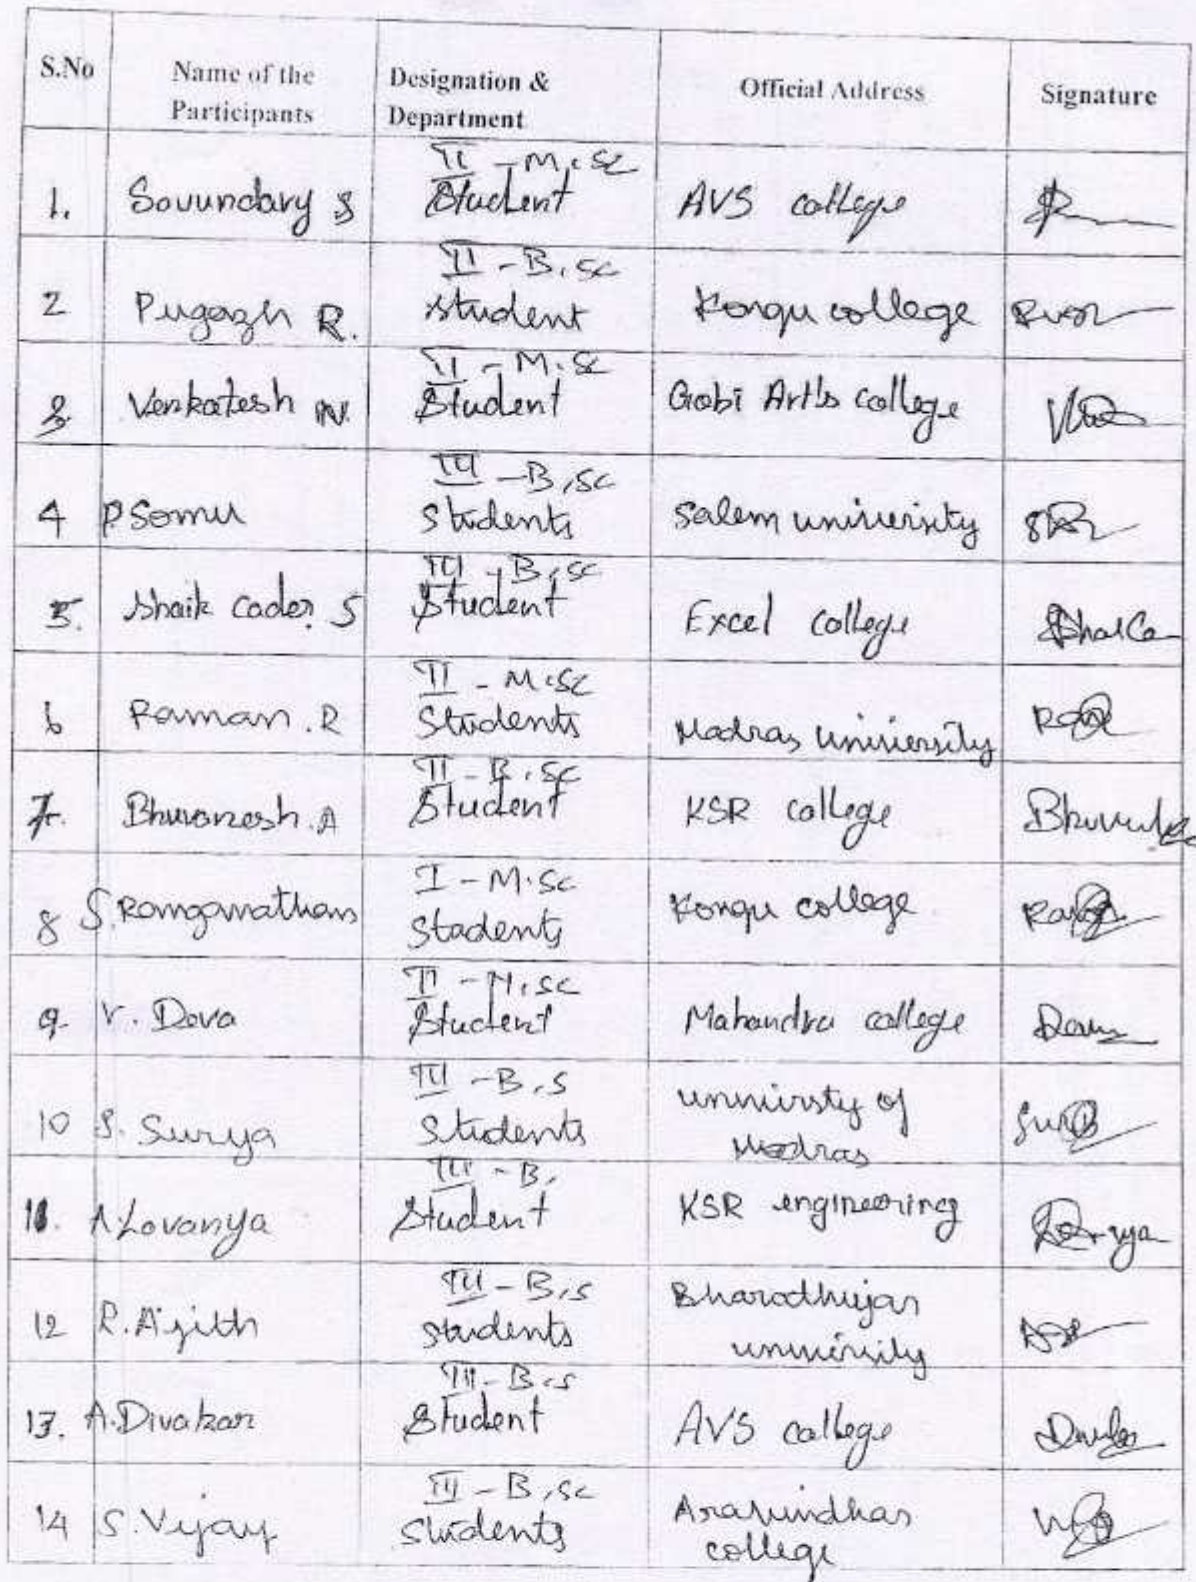 S.No Name of the Participants Designation & Department Official Address Signature
1. Sovundary S II - M.SC Student AVS college
2 Pugazh R. II - B.SC Student Kongu college
3 Venkatesh N. II - M.SC Student Gobi Art's college
4 P.Somu III - B.SC Students Salem university
5. Shaik Cader S III - B.SC Student Excel college
6 Raman . R II - M.SC Students Madras university
7. Bhuvanesh . A II - B.SC Student KSR college
8 S. Ranganathan I - M.SC Students Kongu college
9. V. Deva II - M.SC Student Mahandra college
10 S. Surya III - B.S Students University of Madras
11. A.Lovanya III - B. Student KSR engineering
12 R.Ajith III - B.S Students Bharadhiyar university
13. A.Divakar III - B.S Student AVS college
14 S.Vijay III - B.SC Students Aravindhar college